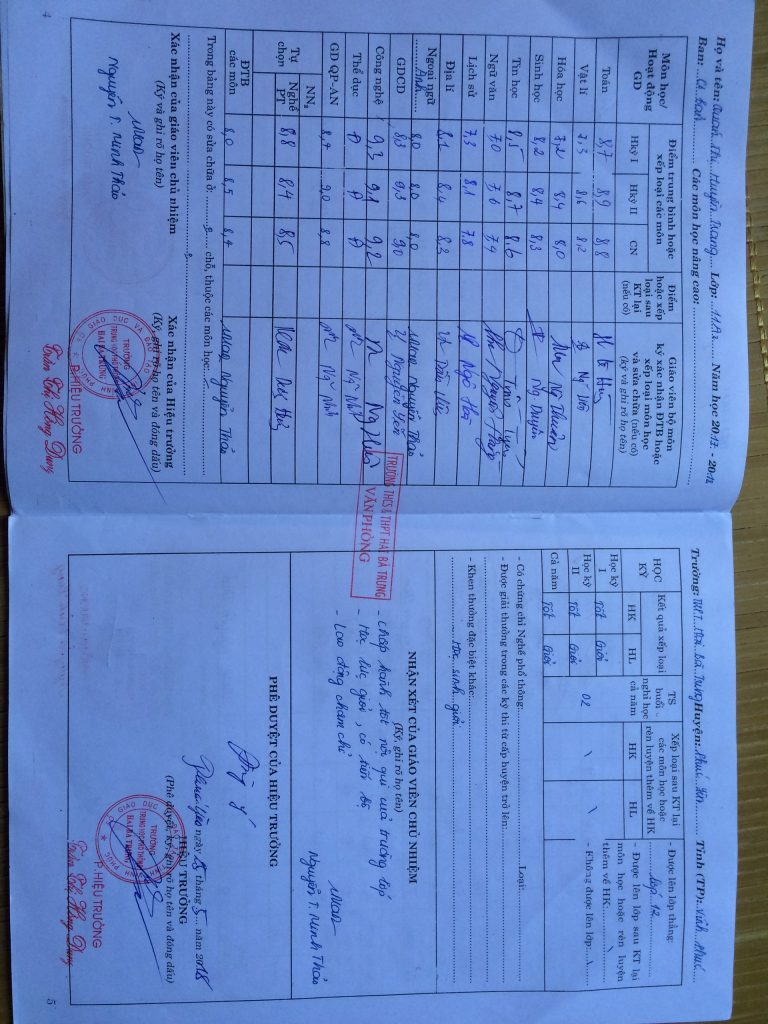 Họ và tên: Quách Thị Huyền Trang Lớp: 11A2 Năm học 2017 - 2018
Ban: Cơ bản Các môn học nâng cao:
Môn học/ Hoạt động GD
Điểm trung bình hoặc xếp loại các môn
Hkỳ I Hkỳ II CN
Điểm hoặc xếp loại sau KT lại (nếu có)
Giáo viên bộ môn ký xác nhận ĐTB hoặc xếp loại môn học và sửa chữa (nếu có) (ký và ghi rõ họ tên)
Toán 8,7 8,9 8,8
Vật lí 7,3 8,6 8,2
Hóa học 7,2 8,4 8,0
Sinh học 8,2 8,4 8,3 Ng Duyên
Tin học 8,5 8,7 8,6
Ngữ văn 7,0 7,6 7,4
Lịch sử 7,3 8,1 7,8 Ngô Hà
Địa lí 8,1 8,4 8,3
Ngoại ngữ Anh 8,0 8,0 8,0 Nguyễn Thảo
GDCD 8,3 9,3 9,0
Công nghệ 9,3 9,1 9,2
Thể dục Đ Đ Đ
GD QP-AN 8,4 9,0 8,8
Tự chọn
NN₂
Nghề PT 8,8 8,4 8,5
ĐTB các môn 8,0 8,5 8,4 Nguyễn Thảo
Trong bảng này có sửa chữa ở: 0 chỗ, thuộc các môn học:
Xác nhận của giáo viên chủ nhiệm
(Ký và ghi rõ họ tên)
Nguyễn T. Minh Thảo
Xác nhận của Hiệu trưởng
(Ký, ghi rõ họ tên và đóng dấu)
P.HIỆU TRƯỞNG
Trần Thị Hồng Dung
4
TRƯỜNG THCS & THPT HAI BÀ TRƯNG
VĂN PHÒNG
Trường: THPT Hai Bà Trưng Huyện: Phúc Yên Tỉnh (TP): Vĩnh Phúc
HỌC KỲ
Kết quả xếp loại
HK HL
TS buổi nghỉ học cả năm
Xếp loại sau KT lại các môn học hoặc rèn luyện thêm về HK
HK HL
Học kỳ I Tốt Giỏi
Học kỳ II Tốt Giỏi
Cả năm Tốt Giỏi
02 \ \
- Được lên lớp thẳng:
Lớp 12
- Được lên lớp sau KT lại môn học hoặc rèn luyện thêm về HK: \
- Không được lên lớp: \
- Có chứng chỉ Nghề phổ thông: Loại:
- Được giải thưởng trong các kỳ thi từ cấp huyện trở lên:
- Khen thưởng đặc biệt khác:
Học sinh giỏi
NHẬN XÉT CỦA GIÁO VIÊN CHỦ NHIỆM
(Ký, ghi rõ họ tên)
- Chấp hành tốt nội qui của trường lớp
- Học lực giỏi, có tiến bộ
- Lao động chăm chỉ
Nguyễn T. Minh Thảo
PHÊ DUYỆT CỦA HIỆU TRƯỞNG
Đồng ý
Phúc Yên ngày 25 tháng 5 năm 2018
HIỆU TRƯỞNG
(Phê duyệt, ký, ghi rõ họ tên và đóng dấu)
P.HIỆU TRƯỞNG
Trần Thị Hồng Dung
5